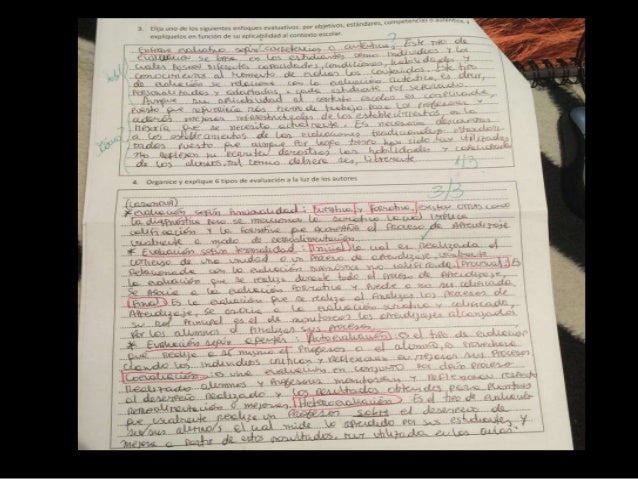 3. Elija uno de los siguientes enfoques evaluativos: por objetivos, estándares, competencias o auténtica, y
explíquelos en función de su aplicabilidad al contexto escolar.
Enfoque evaluativo según competencias o auténtica; Este tipo de
evaluación se basa en los estudiantes como individuos y los
cuales poseen diferentes capacidades, condiciones, habilidades y
conocimientos al momento de evaluar los contenidos. Este tipo
de evaluación se relaciona con la evaluación auténtica, es decir,
personalizadas y enfocadas, a cada estudiante por separado.
Aunque su aplicabilidad al contexto escolar es complicada,
puesto que más tiempo de trabajo para los profesores y
además mejores infraestructuras de los establecimientos, es la
mejoría que se necesita actualmente. Es necesario
a los establecimientos de las evaluaciones tradicionales
puesto que aunque por largo tiempo han sido las utilizadas
no reflejan ni permiten demostrar las habilidades y capacidades
de los alumnos, tal como debiese ser, libremente.
4/3
4. Organice y explique 6 tipos de evaluación a la luz de los autores
3/3
(CASANOVA)
* Evaluación según finalidad: Sumativa y formativa, existen otras como
la diagnóstica pero se mencionan la sumativa la cual implica
calificación y la formativa que acompaña el proceso de aprendizaje
usualmente a modo de retroalimentación.
* Evaluación según temporalidad: Inicial la cual es realizada al
comienzo de una unidad o un proceso de aprendizaje, usualmente
relacionada con la evaluación diagnóstica no calificada. Procesual: Es
la evaluación que se realiza durante todo el proceso de aprendizaje,
se asocia a la evaluación formativa y puede o no ser calificada.
Final: Es la evaluación que se realiza al finalizar los procesos de
aprendizaje, se asocia a la evaluación sumativa y calificada,
su rol principal es el de monitorear los aprendizajes alcanzados
por los alumnos al finalizar sus procesos.
* Evaluación según agentes: Autoevaluación: es el tipo de evaluación
que realiza a sí mismo el profesor o el alumno,
los individuos critican y reflexionan en mejorar sus procesos.
Coevaluación: es una evaluación en conjunto
realizada alumnos y profesores monitorean y reflexionan respecto
al desempeño realizado y los resultados obtenidos para plantear
retroalimentación o mejoras. Heteroevaluación: Es el tipo de evaluación
que usualmente realiza un profesor sobre el desempeño de
sus alumno/s el cual mide lo aprendido por sus estudiantes, y
mejora a partir de estos resultados, muy utilizada en las aulas.